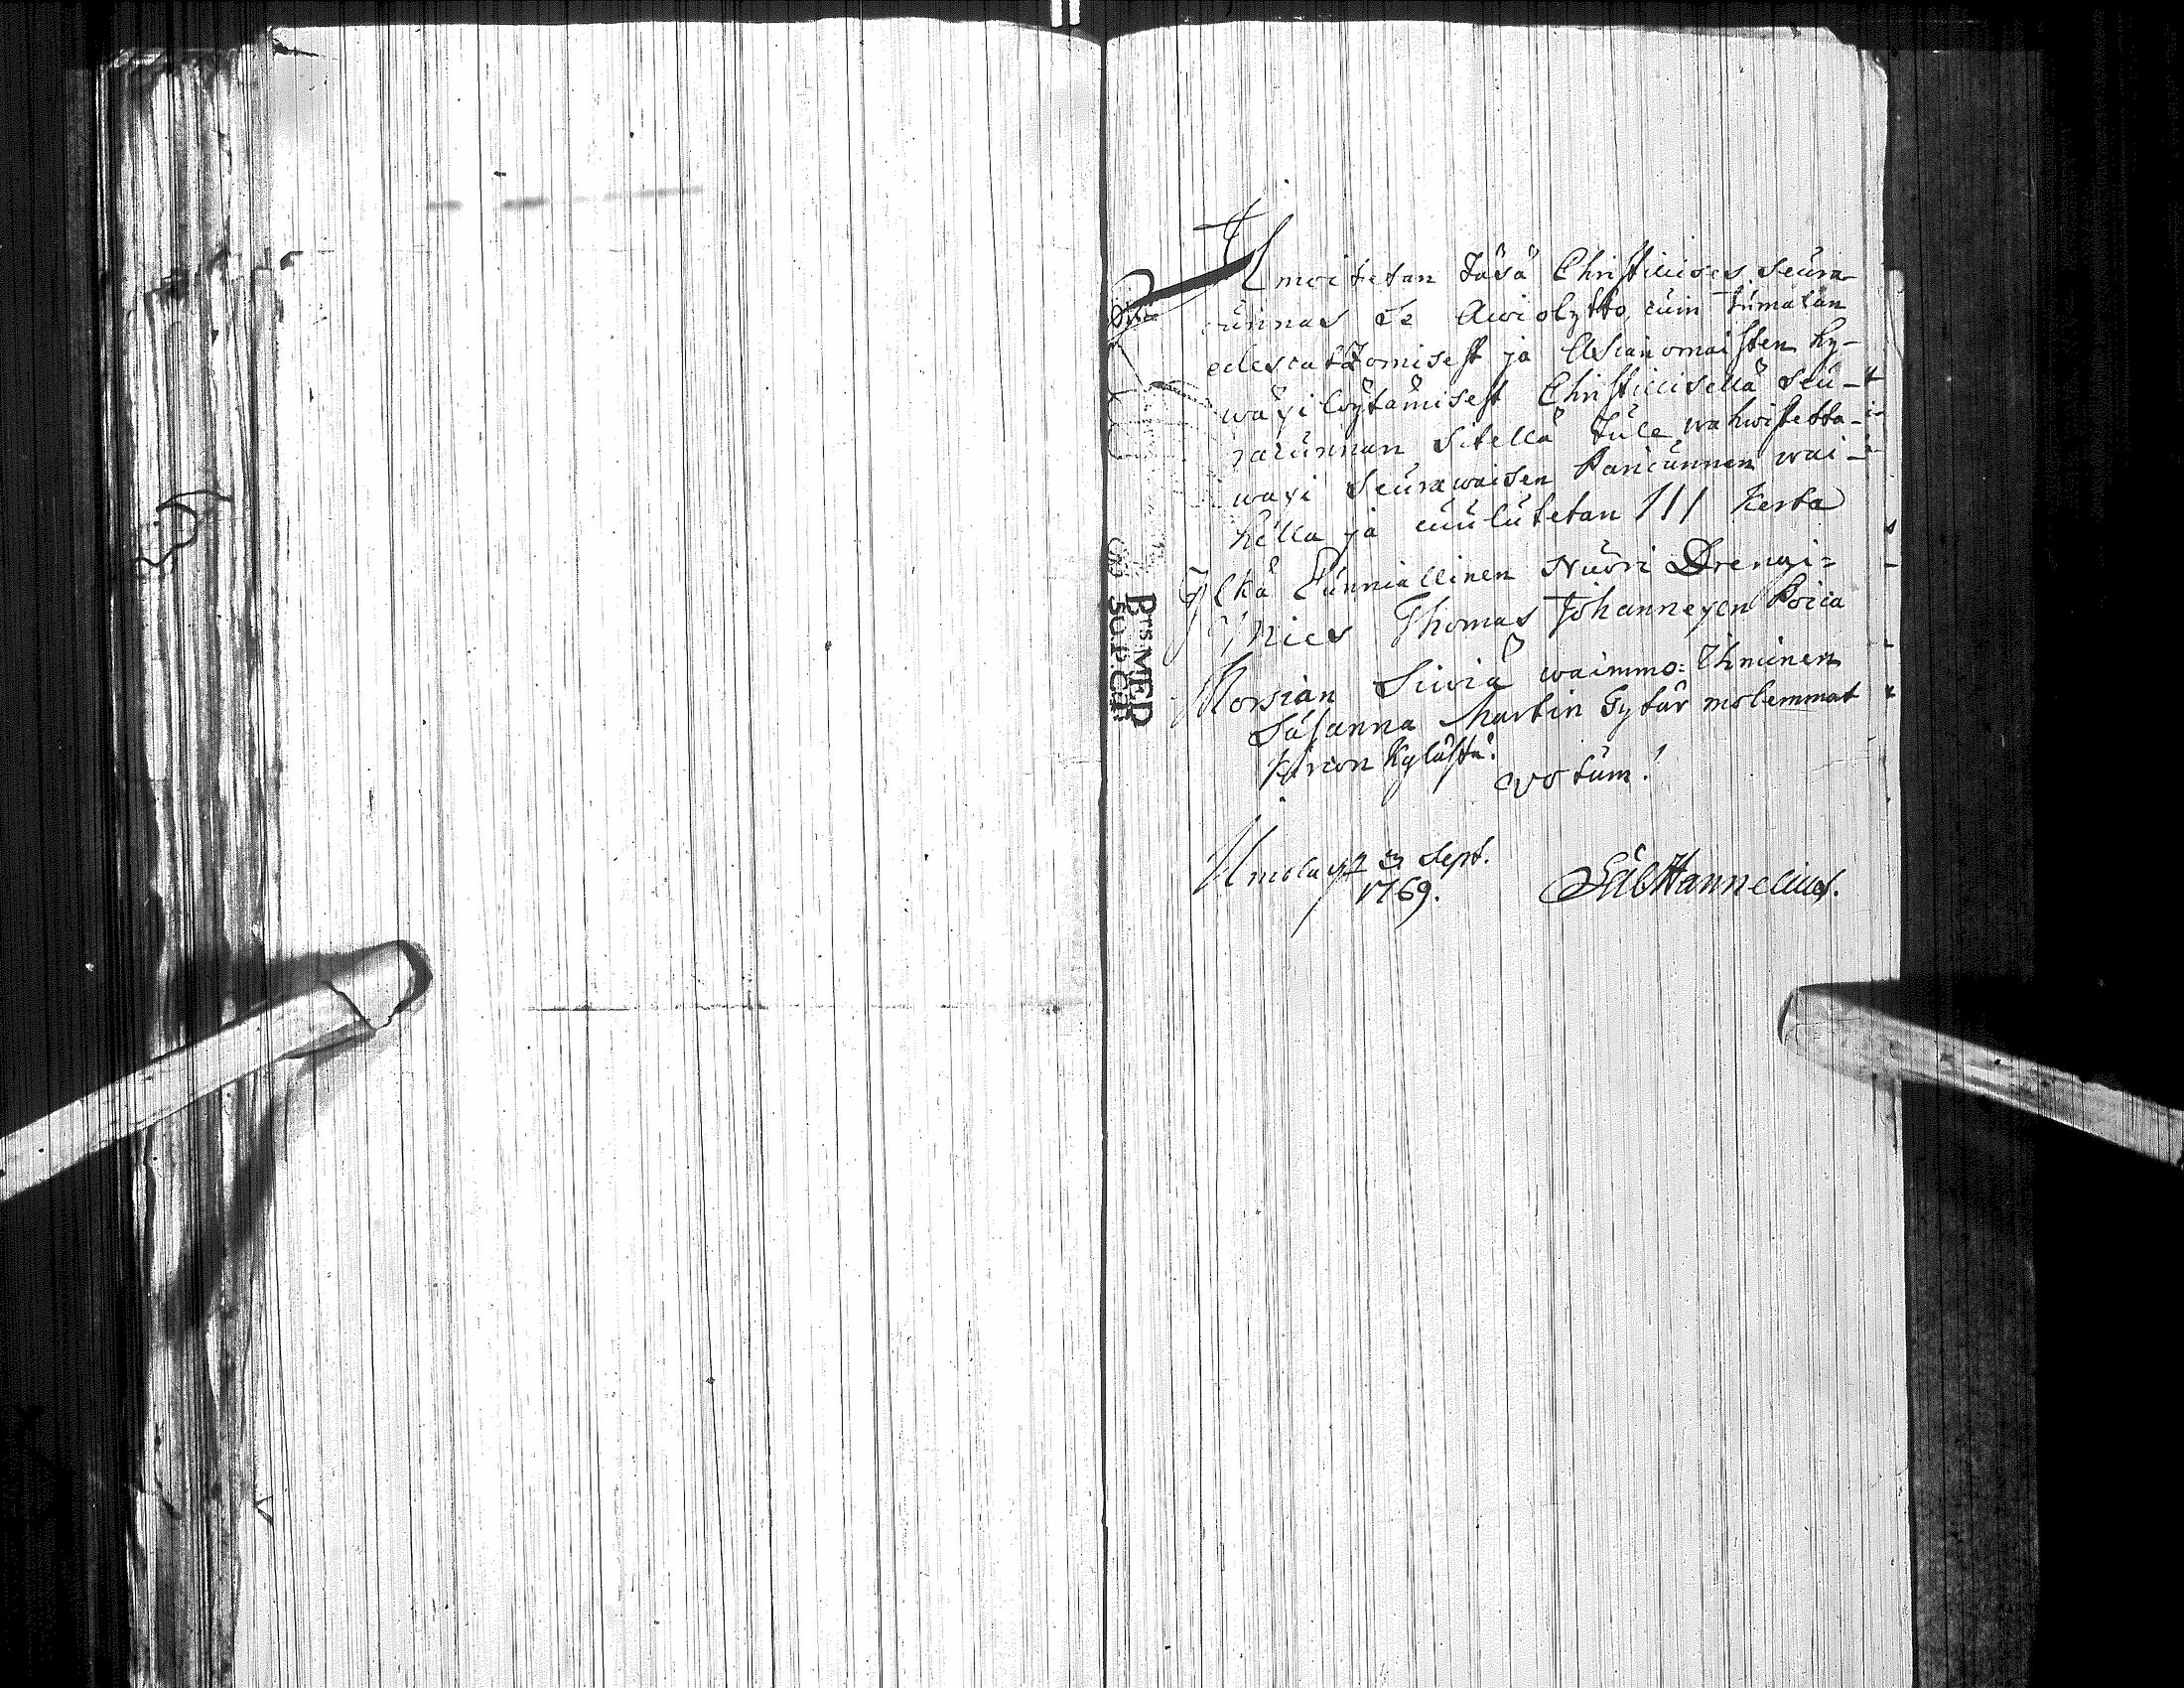 Ilmoitetan täsä Christilises Seura
cunnas se Awiolytto cuin Jumalan
edescatzomisest ja Asianomaisten hy-
wäxi löytämisest Christillisellä Seu-
racunnan Sitellä tule wahwistetta-
waxi Seurawaisen Pariscunnan wai-
hella ja cuulutetan III Kerta
Yljkä Cunniallinen Nuori Drengi=
Mies Thomas Johannexen Poica
Morsian Siwiä waimmo=Ihminen
Susanna Martin Tytär molemmat
Kylästä.
Votum!
d. 3 Sept.
1769.
Hannelius.